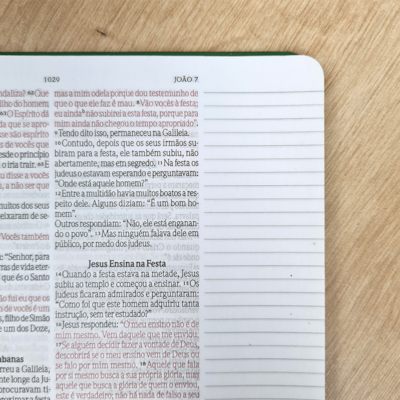 1029
JOÃO 7
ndaliza? ⁶²Que
ilho do homem
O Espírito dá
da que se apro-
que são espírito
s de vocês que
esde o princípio
o iria trair.
u disse a vocês
, a não ser que
uitos dos seus
eixaram de se-
Vocês também
: "Senhor, para
ras de vida eter-
que és o Santo
ão fui eu que os
m de vocês é um
, filho de Simão
e um dos Doze,
banas
rreu a Galileia,
nte longe da Ju-
procuravam ti-
mas a mim odeia porque dou testemunho de
que o que ele faz é mau. ⁸Vão vocês à festa;
eu ainda não subirei a esta festa, porque para
mim ainda não chegou o tempo apropriado".
⁹Tendo dito isso, permaneceu na Galileia.
¹⁰Contudo, depois que os seus irmãos su-
biram para a festa, ele também subiu, não
abertamente, mas em segredo. ¹¹Na festa os
judeus o estavam esperando e perguntavam:
"Onde está aquele homem?"
¹²Entre a multidão havia muitos boatos a res-
peito dele. Alguns diziam: "É um bom ho-
mem".
Outros respondiam: "Não, ele está enganan-
do o povo". ¹³Mas ninguém falava dele em
público, por medo dos judeus.
Jesus Ensina na Festa
¹⁴Quando a festa estava na metade, Jesus
subiu ao templo e começou a ensinar. ¹⁵Os
judeus ficaram admirados e perguntaram:
"Como foi que este homem adquiriu tanta
instrução, sem ter estudado?"
¹⁶Jesus respondeu: "O meu ensino não é de
mim mesmo. Vem daquele que me enviou.
¹⁷Se alguém decidir fazer a vontade de Deus,
descobrirá se o meu ensino vem de Deus ou
se falo por mim mesmo. ¹⁸Aquele que fala
por si mesmo busca a sua própria glória, mas
aquele que busca a glória de quem o enviou,
este é verdadeiro; não há nada de falso a seu